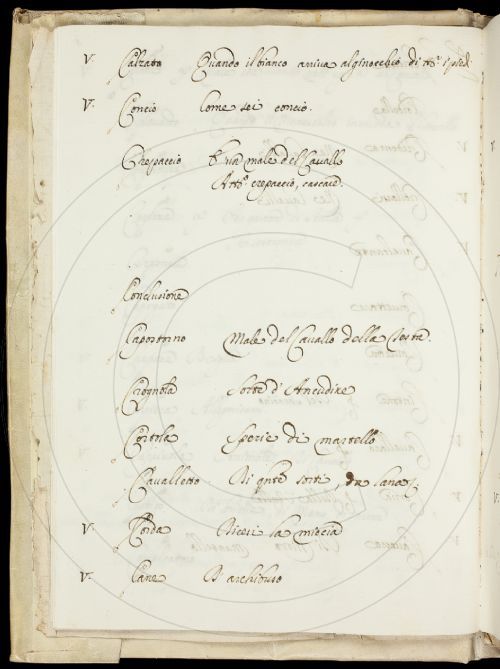 V. Calzato Quando il bianco arriva al ginocchio di
V. Concio Come sei concio.
Crepaccio È un male del Cavallo
crepaccio,
Conclusione
Capostorno Male del Cavallo della Testa.
Cicognola Sorte d'Ancudine
Cortola Spezie di martello
Cavalletto Di
V. Corda Dicesi la miccia
V. Cane D'archibuso